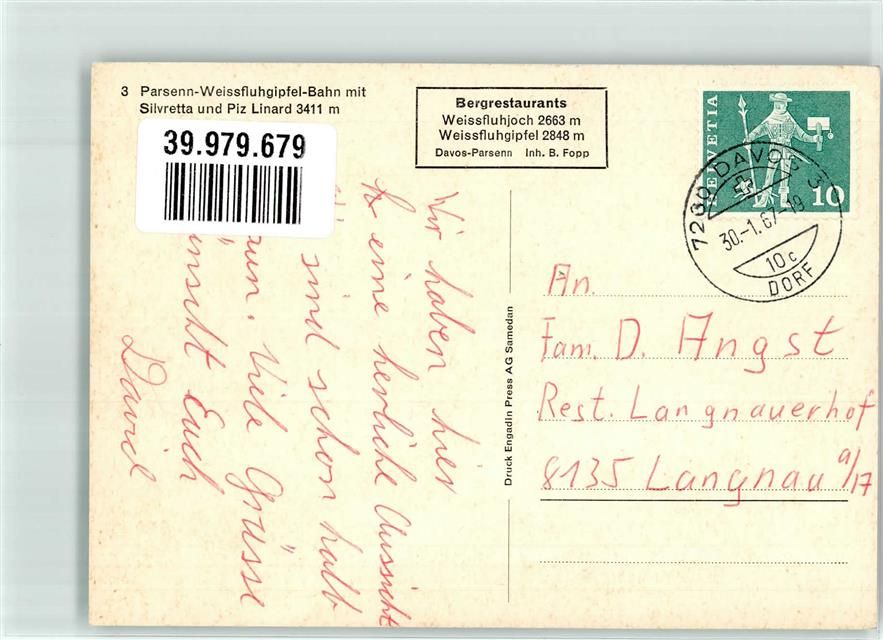 3 Parsenn-Weissfluhgipfel-Bahn mit
Silvretta und Piz Linard 3411 m
39.979.679
Bergrestaurants
Weissfluhjoch 2663 m
Weissfluhgipfel 2848 m
Davos-Parsenn Inh. B. Fopp
HELVETIA
10
7260 DAVOS 3
30.-1.67-19
10c
DORF
Wir haben hier
eine herliche Aussicht
sind schon halb
Viele Grüsse
Euch
David
Druck Engadin Press AG Samedan
An.
Fam. D. Angst
Rest. Langnauerhof
8135 Langnau a/